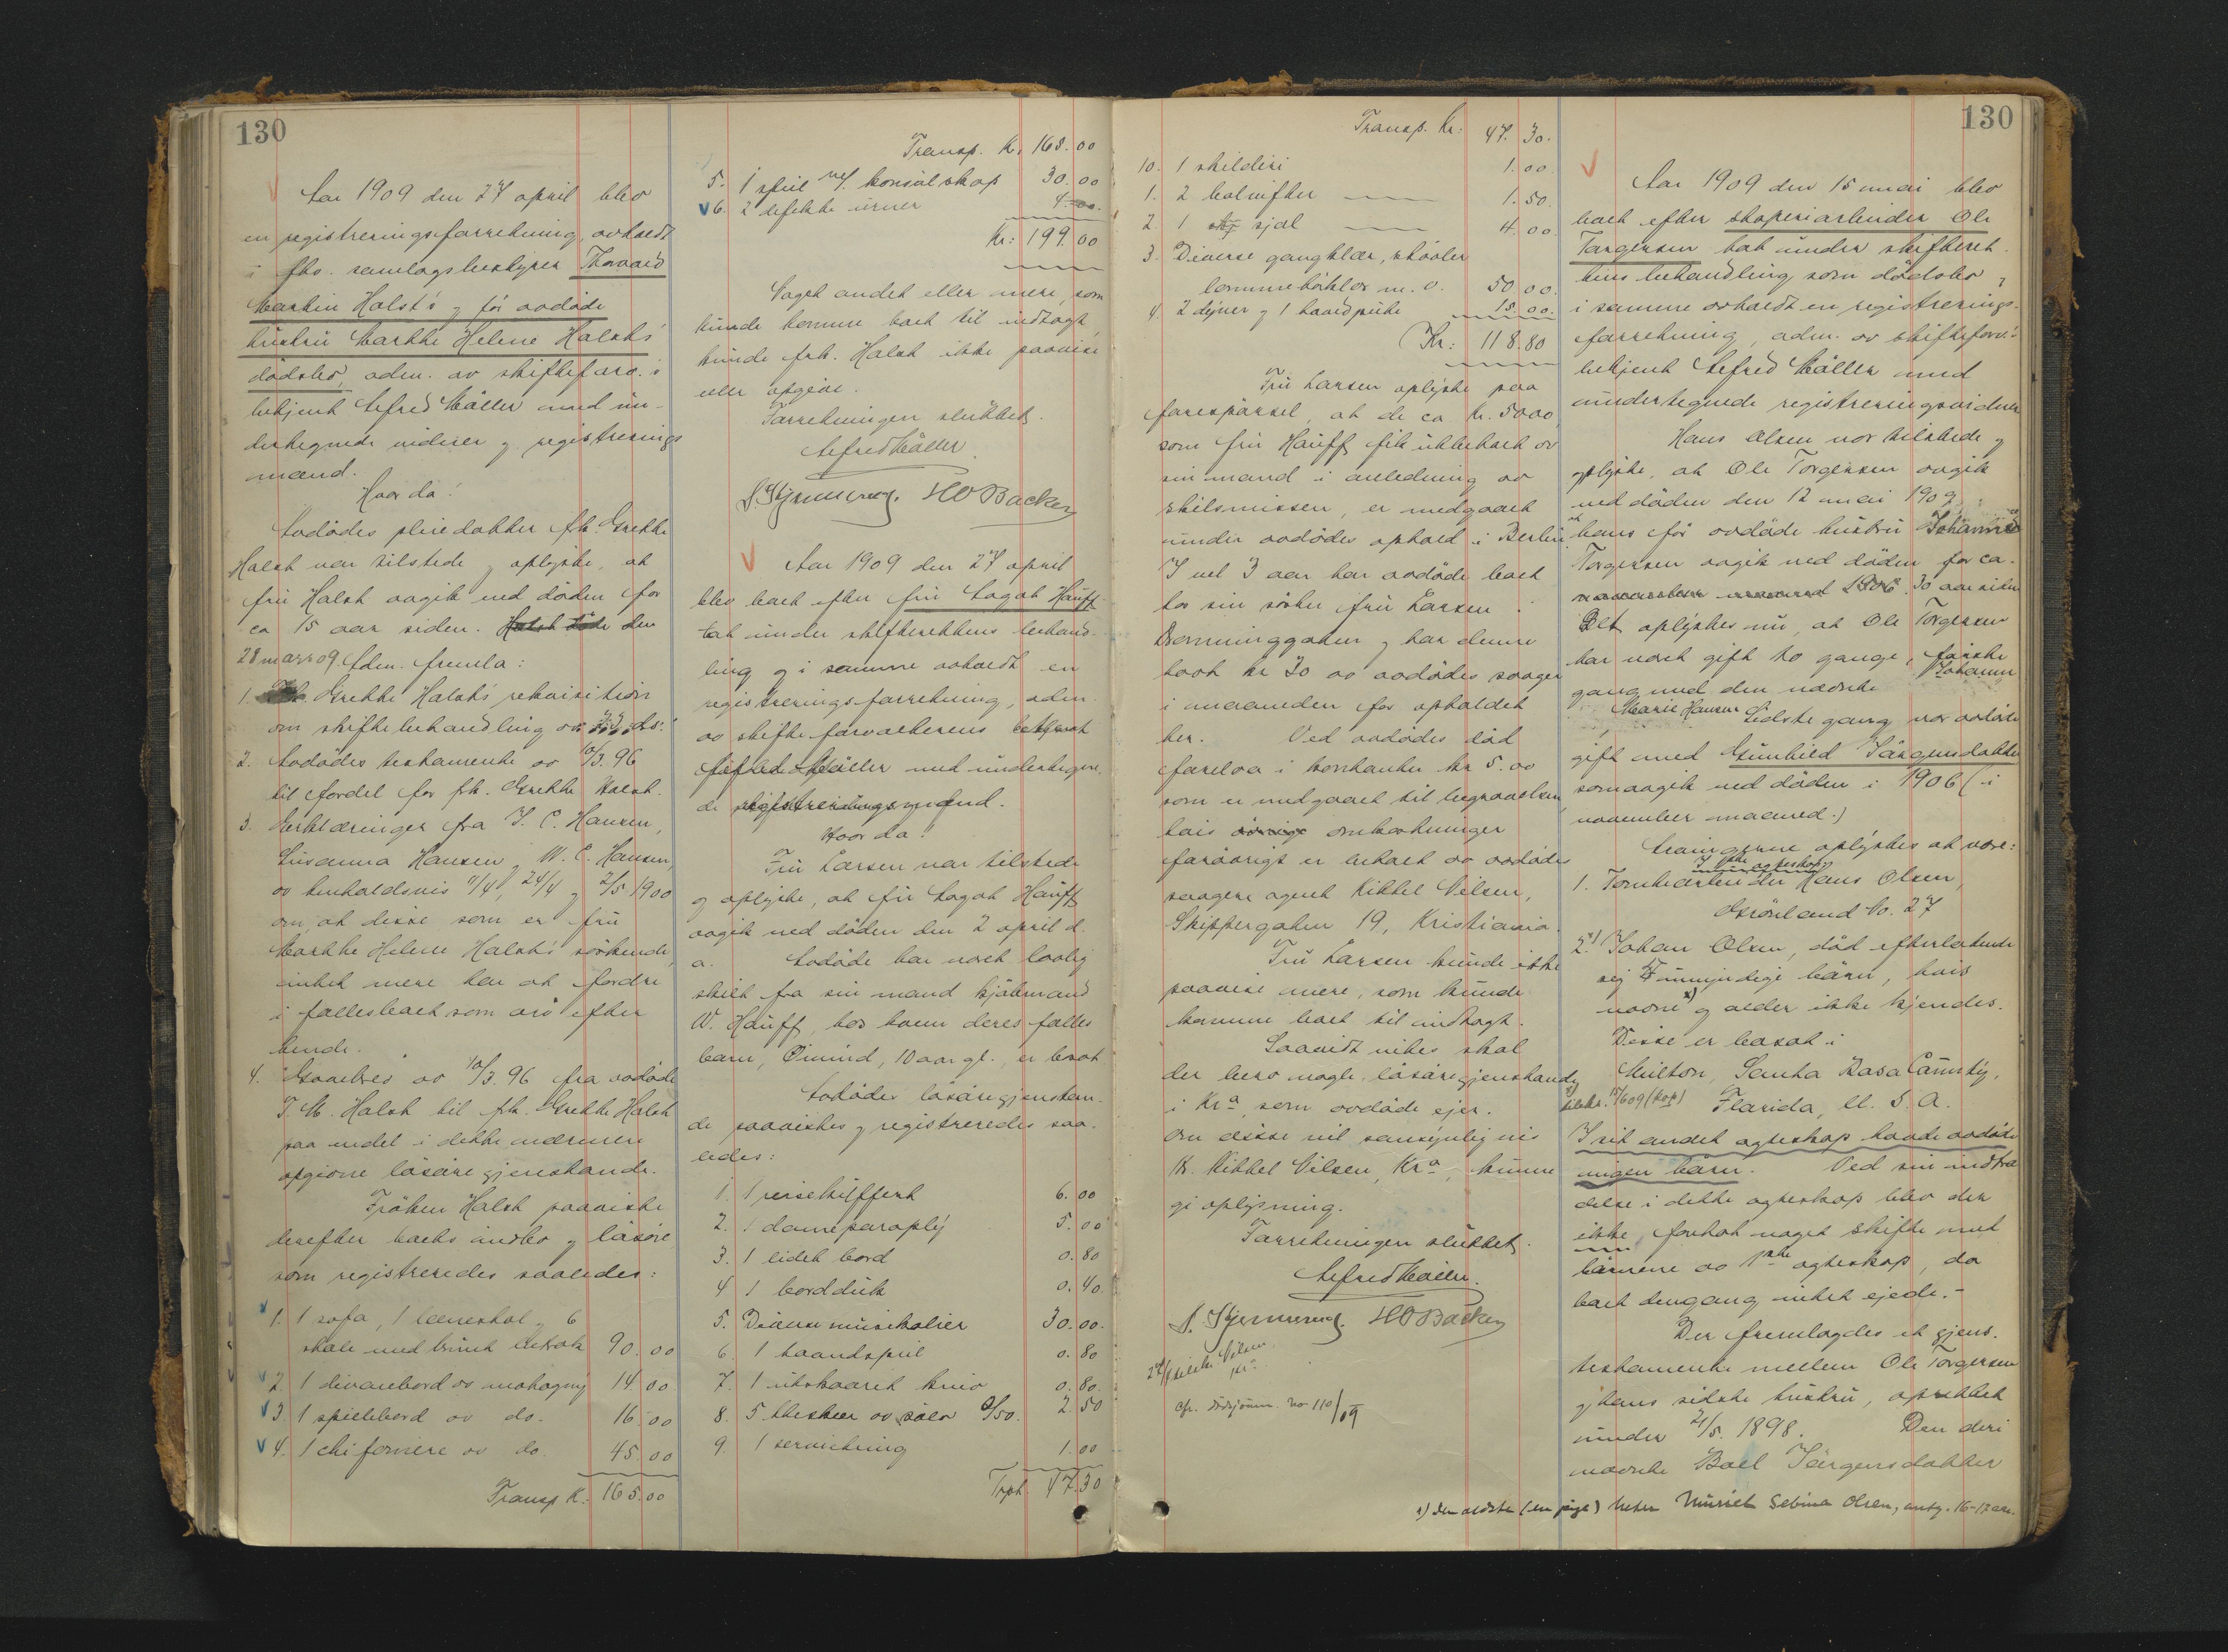 130
Aar 1909 den 27 april blev
en registreringsforretning avholdt
i fhv. samlagsbestyrer Thorvald
Martin Holst's og før avdøde
hustru Marthe Helene Holsts
dødsbo, adm. av skifteforv.s
betjent Alfred Møller med un-
dertegnede vidner og registrerings
mænd.
Hvorda!
Avdødes pleiedatter frk. Grethe
Holst var tilstede og oplyste, at
fru Holst avgik ved døden for
ca 15 aar siden. Holst døde den
28 mars 09. Adm. fremla:
1. Grethe Holsts rekvisition
om skiftebehandling av
2. Avdødes testamente av 10/3.96
til fordel for frk. Grethe Holst.
3. Erklæringer fra J. C. Hansen,
Susanna Hansen og W. C. Hansen,
av henholdsvis 11/4, 24/4 og 2/5 1900
om, at disse som er fru
Marthe Helene Holst's søskende,
intet mere har at fordre
i fællesboet som arv efter
hende.
4. Gavebrev av 10/3.96 fra avdøde
T. M. Holst til frk. Grethe Holst
paa endel i dette nærmere
opgivne løsøregjenstande.
Frøken Holst paaviste
derefter boets indbo og løsøre
som registreredes saaledes:
1. 1 sofa, 1 lænestol og 6
stole med brunt betræk 90.00
2. 1 divanbord av mahogny 14.00
3. 1 spillebord av do. 16.00
4. 1 chifoniere av do. 45.00
Transp K. 165.00
Transp. K. 168.00
5. 1 speil m/ konsolskap 30.00
6. 2 defekte urner 4.00.
Kr: 199.00
Noget andet eller mere, som
kunde komme boet til indtægt,
kunde frk. Holst ikke paavise
eller opgive.
Forretningen sluttet.
Alfred Møller.
HO Backer
Aar 1909 den 27 april
blev boet efter fru Hauff
tat under skifterettens behand-
ling og i samme avholdt en
registreringsforretning, adm.
av skifteforvalterens betjent
Alfred Møller med undertegne-
de registreringsmænd.
Hvorda!
Fru Larsen var tilstede
og oplyste, at fru Hauff
avgik ved døden den 2 april d.
a. Avdøde har været lovlig
skilt fra sin mand kjøbmand
W. Hauff, hos hvem deres fælles
barn, Øivind, 10 aar gl., er bosat
Avdødes løsøregjenstan-
de paavistes og registreredes saa-
ledes:
1. 1 reisekuffert 6.00
2. 1 dameparaply 5.00
3. 1 lidet bord 0.80
4 1 bordduk 0.40
5. Diverse musikalier 30.00.
6. 1 haandspeil 0.80
7. 1 utskaaret kniv 0.80.
8. 5 theskeer av sølv a/50. 2.50
9. 1 serviettring 1.00
Trpt 47.30
130
Transp. Kr: 47.30.
10. 1 skilderi 1.00
1. 2 halvifter 1.50.
2. 1 sjal 4.00
3. Diverse gangklær, støvler
lommetørklær m. v. 50.00.
4. 2 dyner og 1 hovedpute 15.00.
Kr: 118.80
Fru Larsen oplyste paa
forespørsel, at de ca kr. 5000,
som fru Hauff fik utbetalt av
sin mand i anledning av
skilsmissen, er medgaaet
under avdødes ophold i Berlin
I vel 3 aar har avdøde boet
hos sin søster fru Larsen i
Dronninggaten og har denne
faat kr 30 av avdødes
i maaneden for opholdet
her. Ved avdødes død
forelaa i kontanter kr 5.00
som er medgaaet til begravelsen
hvis omkostninger
forøvrigt er betalt av avdødes
agent Kittel Nilsen,
Skippergaten 19, Kristiania.
Fru Larsen kunde ikke
paavise mere, som kunde
komme boet til indtægt.
Saavidt vites skal
der bero nogle løsøregjenstande
i Kra, som avdøde ejer.
Om disse vil sansynligvis
Hr. Kittel Nilsen, Kra, kunne
gi oplysning.
Forretningen sluttet.
Alfred Møller.
HO Backer
cfr. dødsjourn. no 110/09
130
Aar 1909 den 15 mai blev
boet efter skoperiarbeider Ole
Torgersen tat under skifteret-
tens behandling som dødsbo og
i samme avholdt en registrerings-
forretning, adm. av skifteforv.s
betjent Alfred Møller med
undertegnede registreringsvidner
Hans Olsen var tilstede og
oplyste, at Ole Torgersen avgik
ved døden den 12 mai 1909
hans før avdøde hustru Johanne
Torgersen avgik ved døden for ca.
30 aar siden
Det oplystes nu, at Ole Torgersen
har været gift to gange, første
gang med den nævnte Johanne
Marie Hansen Sidste gang var avdøde
gift med Gunhild Jørgensdatter
som avgik ved døden i 1906 (i
november maaned.)
Arvingerne oplystes at være:
I 1ste egteskap
1. Tomtearbeider Hans Olsen,
Grønland No. 27
2. Johan Olsen, død efterlatende
sig 4 umyndige børn, hvis
navne x) og alder ikke kjendes.
Disse er bosat i
Milton, Santa Rosa County,
Florida, U. S. A.
I sit andet egteskap havde avdøde
ingen børn. Ved sin indtræ
delse i dette egteskap blev der
ikke foretat noget skifte med
børnene av 1ste egteskap, da
boet dengang intet ejede.-
Der fremlagdes et gjens.
testamente mellem Ole Torgersen
og hans sidste hustru, oprettet
under 21/5. 1898. Den deri
nævnte Boel Jørgensdatter
x) Den ældste (en pige) heter Muriel Sebina Olsen, antg. 16-17 aar.